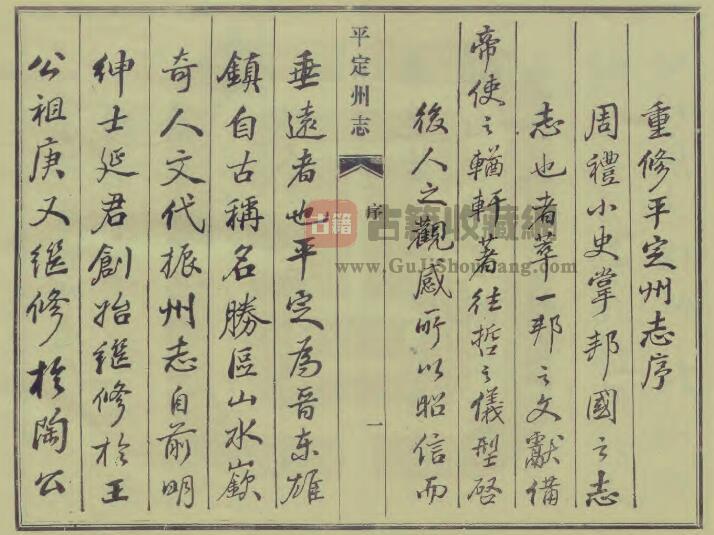 重修平定州志序
周禮小史掌邦國之志
志也者萃一邦之文獻備
帝使之輶軒著往哲之儀型啓
後人之觀感所以昭信而
平定州志
序
一
垂遠者也平定為晉東雄
鎮自古稱名勝區山水嶔
奇人文代振州志自前明
紳士延君創始繼修於王
公祖庚又繼修於陶公
古籍
古籍收藏
www.GuJiShouCang.com